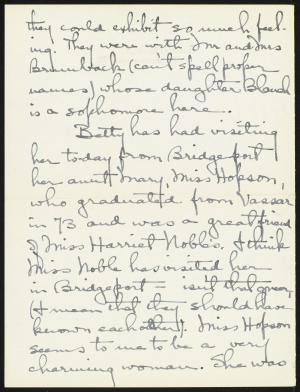 they could exhibit so much feel-
ing. They were with Mr and Mrs
Brumback (can't spell proper
names) whose daughter Blanch
is a sophomore here.
Betty has had visiting
her today from Bridgeport
her aunt Mary, Miss Hopson,
who graduated from Vassar
in 73 and was a great friend
of Miss Harriet Noble's. I think
Miss Noble has visited her
in Bridgeport = isn't that queer,
(I mean that they should have
known each other). Miss Hopson
seems to me to be a very
charming woman. She was